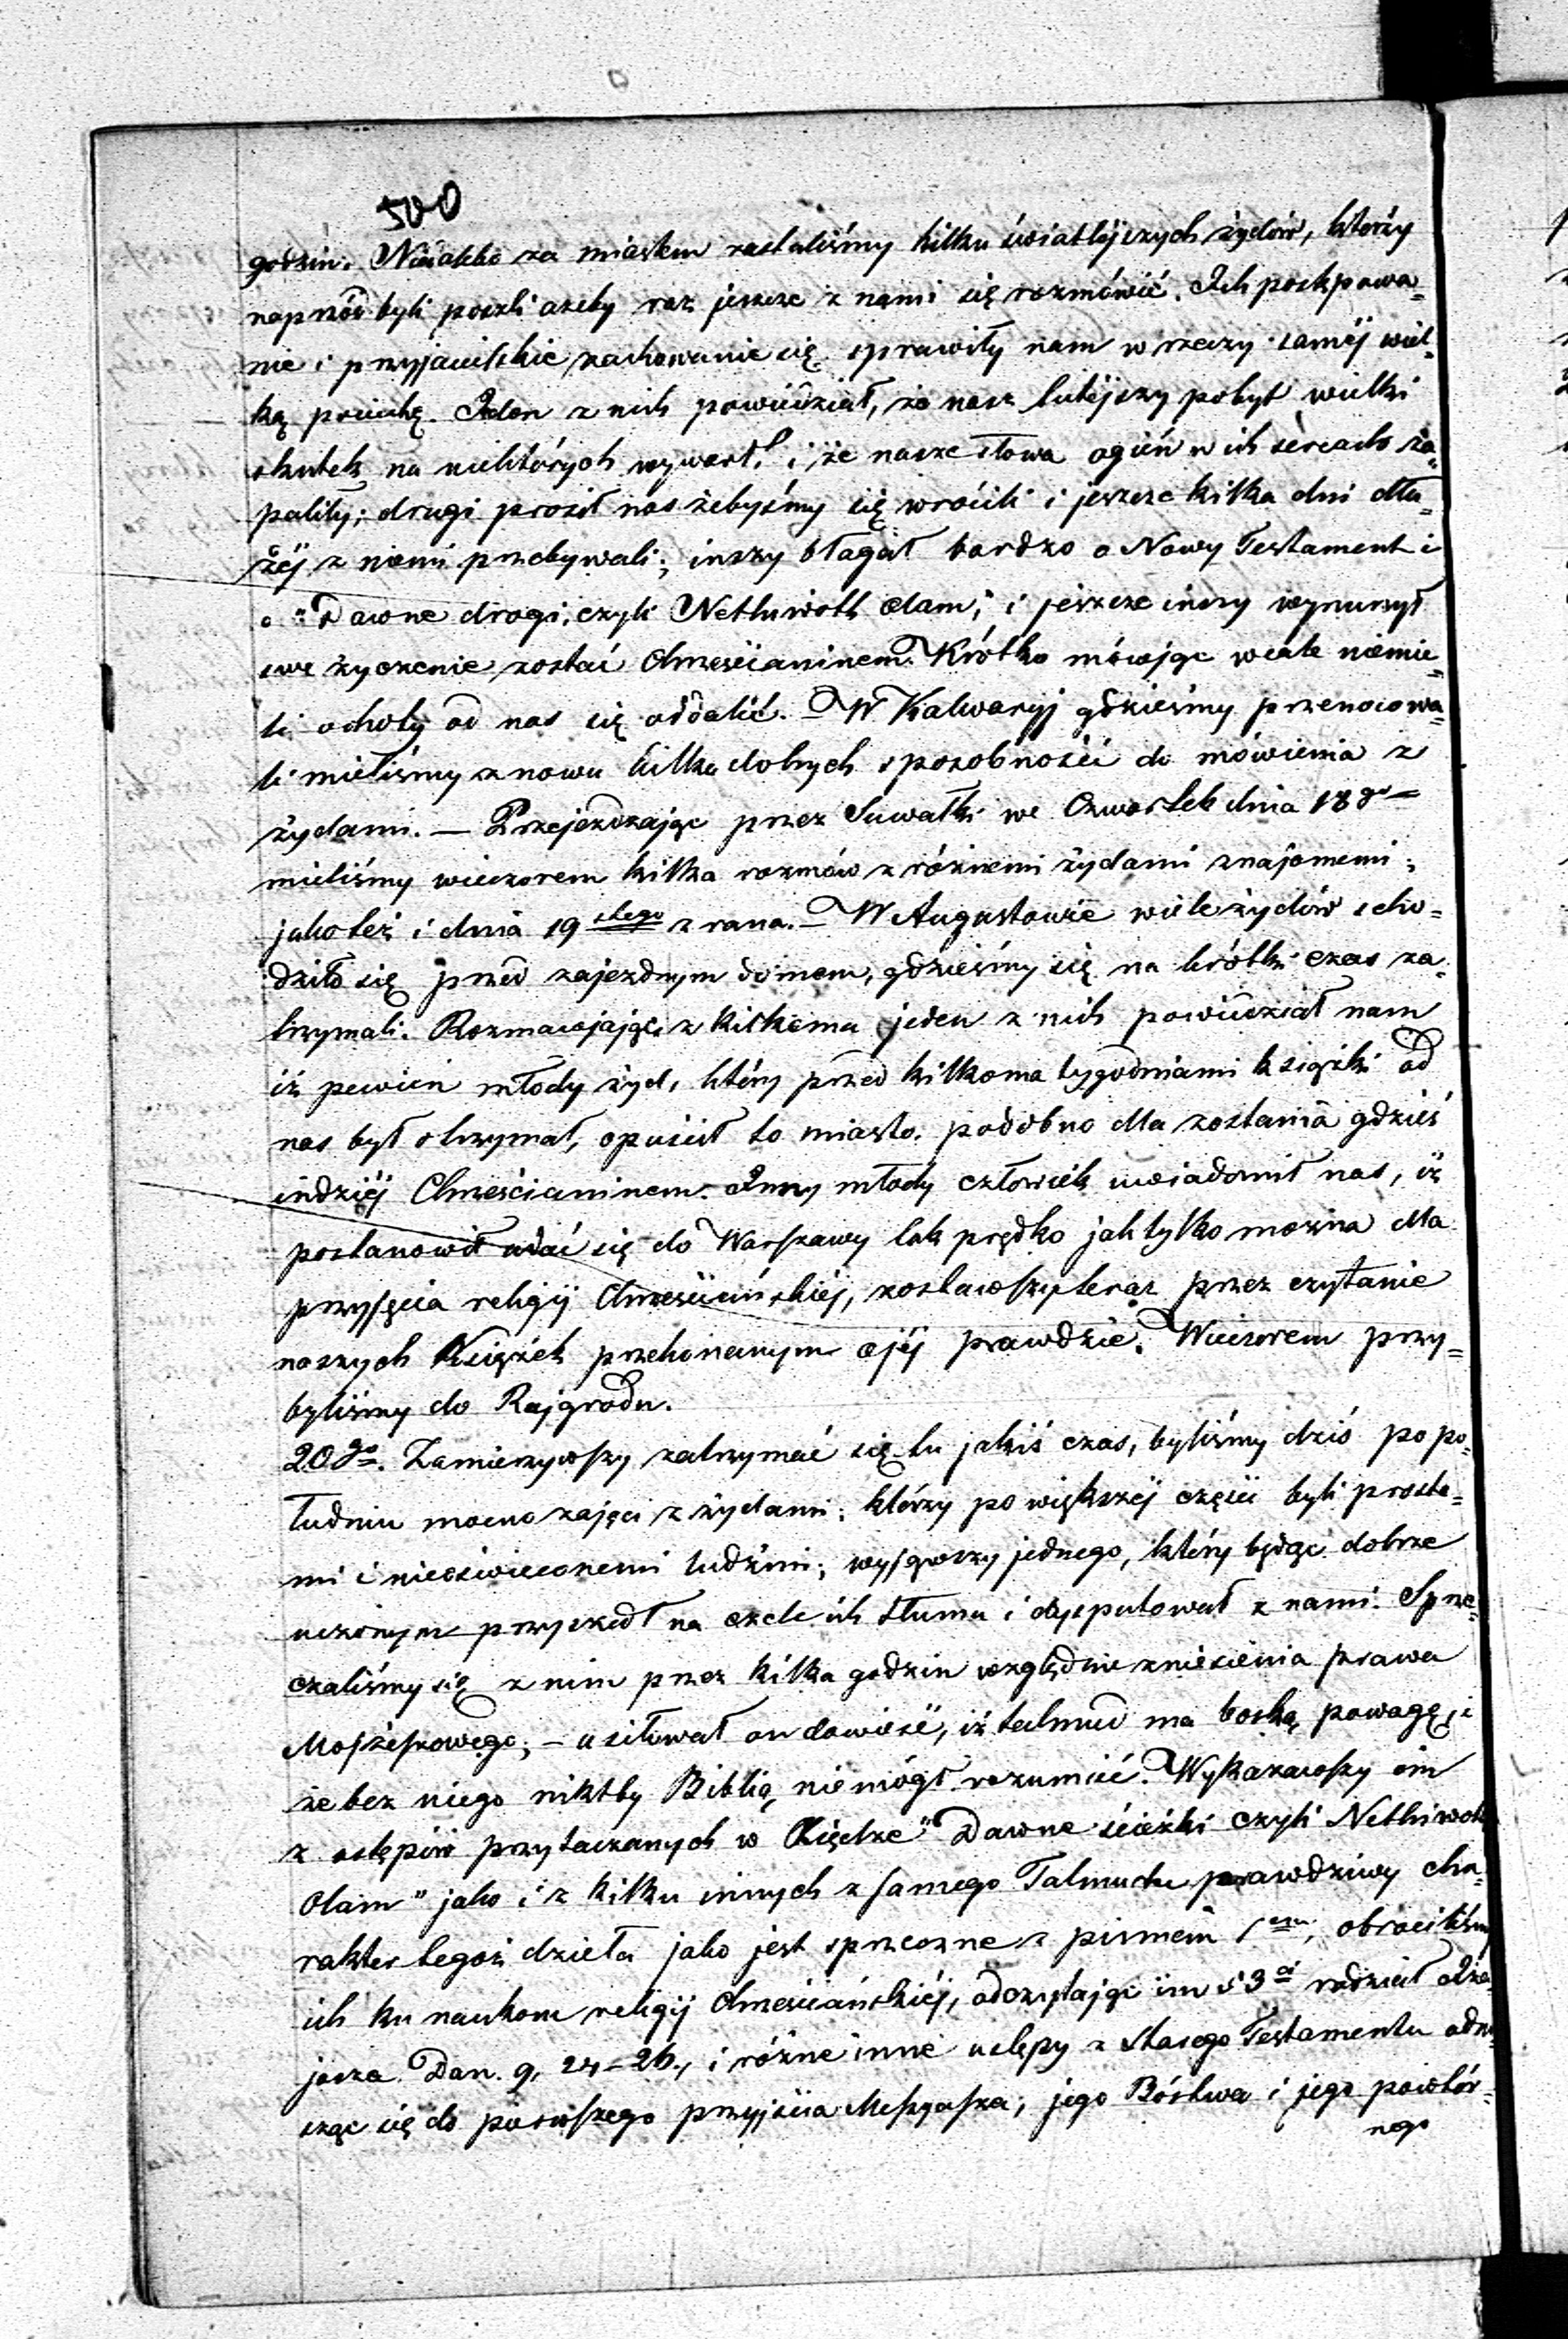 500
godzin. Niedaleko za miastem zastaliśmy kilku światlejszych żydów, którzy
naprzód byli poszli ażeby raz jeszcze z nami się rozmówić. Ich postępowa=
nie i przyjacielskie zachowanie się sprawiły nam w rzeczy saméj wiel=
ką pociechę. Jeden z nich powiedział, że nasz tutejszy pobyt wielki
skutek na niektórych wywarł, i że nasze słowa ogień w ich sercach za=
paliły; drugi prosił nas żebyśmy się wrócili i jeszcze kilka dni dłu=
żéj z niemi przebywali; inszy błagał bardzo o Nowy Testament i
o "Dawne drogi, czyli Nethiwoth olam," i jeszcze inszy wynurzył
swe życzenie zostać Chrześcianinem. Krótko mówjąc wcale niemie=
li ochoty od nas się oddalić. — W Kalwaryj gdzieśmy przenocowa=
li mieliśmy znowu kilka dobrych sposobności do mówienia z
żydami. — Przejeżdzając przez Suwałki we Czwartek dnia 18go
mieliśmy wieczorem kilka rozmów z różnemi żydami znajomemi;
jako też i dnia 19stego z rana. — W Augustowie wiele żydów scho=
dziło się przed zajezdnym domem, gdzieśmy się na krótki czas za=
trzymali. Rozmawjając z kilkoma jeden z nich powiedział nam
iż pewien młody żyd, który przed kilkoma tygodniami książki od
nas był otrzymał, opuścił to miasto, podobno dla zostania gdzieś
indziéj Chrześcianinem. Inny młody człowiek uwiadomił nas, iż
postanowił udać się do Warszawy tak prędko jak tylko można dla
przyjęcia religij Chrześciańskiéj, zostawszy teraz przez czytanie
naszych Książek przekonanym o jéj prawdzie. Wieczorem przy=
byliśmy do Rajgrodu.
20go. Zamierzywszy zatrzymać się tu jakiś czas, byliśmy dziś po po=
łudniu mocno zajęci z żydami; którzy po większéj części byli proste=
mi i nieoświeconemi ludźmi; wyjąwszy jednego, który będąc dobrze
uczonym przyszedł na czele ich tłumu i dysputował z nami. Sprze=
czaliśmy się z nim przez kilka godzin względnie zniesienia prawa
Mojżeszowego; — usiłował on dowieść, iż talmud ma boską powagę, i
że bez niego niktby Biblią niemógł rozumieć. Wykazawszy im
z ustępów przytaczanych w Księdze "Dawne ścieżki czyli Nethiwoth
Olam" jako i z kilku innych z samego Talmudu prawdziwy cha=
rakter tegoż dzieła jako jest sprzeczne z pismem obróciliśmy
ich ku naukom religij Chrześciańskiéj, odczytając im 53ci rodział Iza=
jasza. Dan. 9, 24-26, i różne inne ustępy z Starego Testamentu odno=
sząc się do pierwszego przyjścia Messyasza; jego Bóstwa i jego powtór=
nego